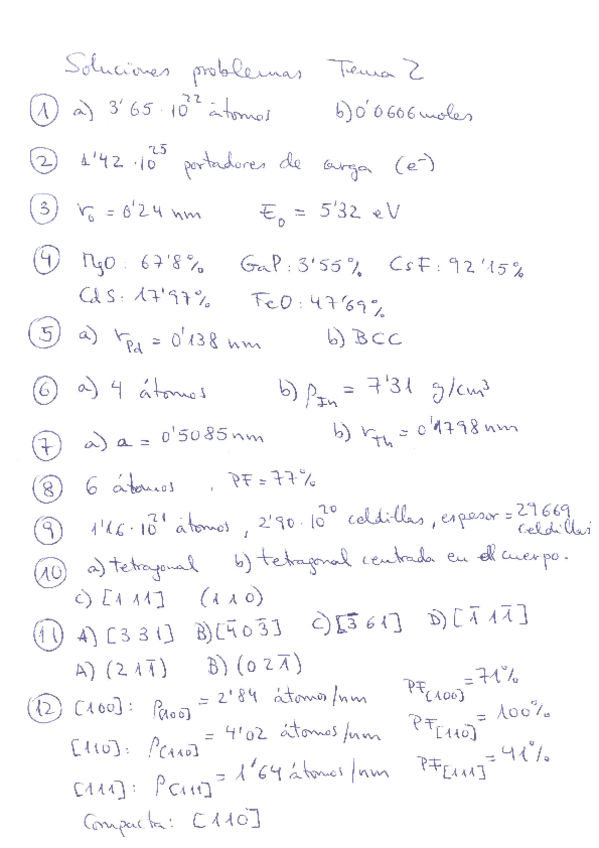 Soluciones problemas Tema 2
① a) 3'65·10²² átomos b) 0'0606 moles
② 1'42·10²⁵ portadores de carga (e⁻)
③ r₀ = 0'24 nm E₀ = 5'32 eV
④ MgO: 67'8% GaP: 3'55% CsF: 92'15%
CdS: 17'97% FeO: 47'69%
⑤ a) r_Pd = 0'138 nm b) BCC
⑥ a) 4 átomos b) ρ_In = 7'31 g/cm³
⑦ a) a = 0'5085 nm b) r_Th = 0'1798 nm
⑧ 6 átomos, PF = 77%
⑨ 1'16·10²¹ átomos, 2'90·10²⁰ celdillas, espesor = 29669 celdillas
⑩ a) tetragonal b) tetragonal centrada en el cuerpo.
c) [1 1 1] (1 1 0)
⑪ A) [3 3 1] B) [4̅ 0 3̅] C) [3̅ 6 1] D) [1̅ 1 1̅]
A) (2 1 1̅) B) (0 2 1̅)
⑫ [100]: ρ[100] = 2'84 átomos/nm PF[100] = 71%
[110]: ρ[110] = 4'02 átomos/nm PF[110] = 100%
[111]: ρ[111] = 1'64 átomos/nm PF[111] = 41%
Compacta: [110]